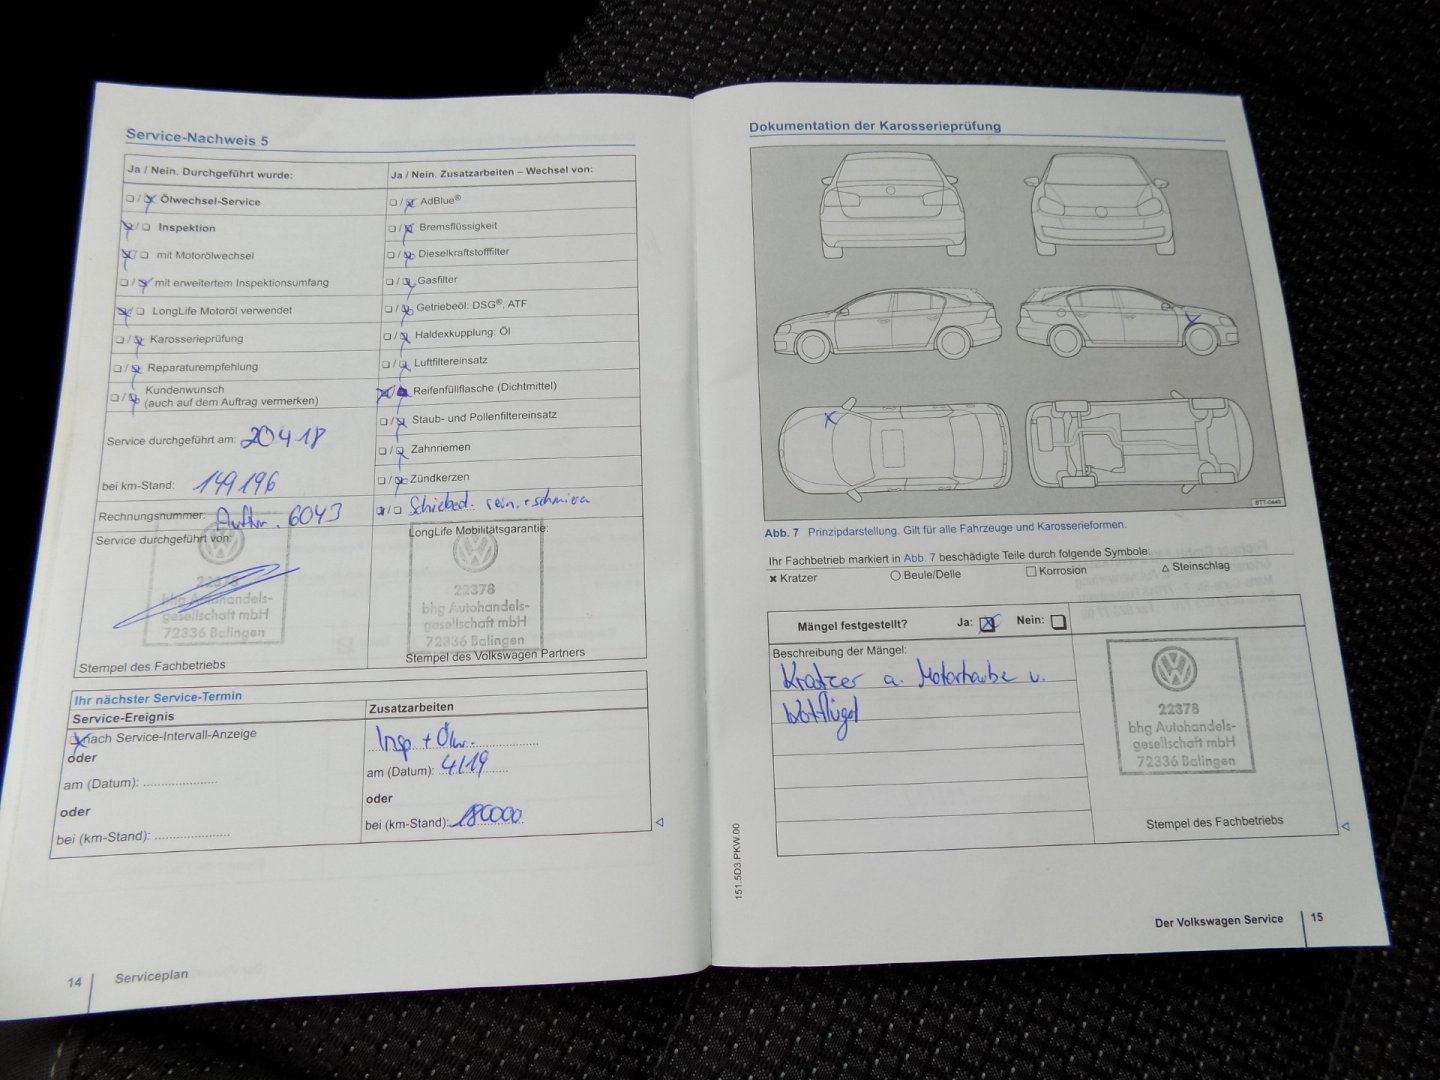 Service-Nachweis 5
Ja / Nein. Durchgeführt wurde:
Ölwechsel-Service
Inspektion
mit Motorölwechsel
mit erweitertem Inspektionsumfang
LongLife Motoröl verwendet
Karosserieprüfung
Reparaturempfehlung
Kundenwunsch
(auch auf dem Auftrag vermerken)
Service durchgeführt am: 20418
bei km-Stand: 149196
Rechnungsnummer: 6043
Service durchgeführt von:
22378
bhg Autohandels-
gesellschaft mbH
72336 Balingen
Stempel des Fachbetriebs
Ja / Nein. Zusatzarbeiten – Wechsel von:
AdBlue®
Bremsflüssigkeit
Dieselkraftstofffilter
Gasfilter
Getriebeöl: DSG®, ATF
Haldexkupplung: Öl
Luftfiltereinsatz
Reifenfüllflasche (Dichtmittel)
Staub- und Pollenfiltereinsatz
Zahnriemen
Zündkerzen
Schiebed. rein. + schmieren
LongLife Mobilitätsgarantie:
22378
bhg Autohandels-
gesellschaft mbH
72336 Balingen
Stempel des Volkswagen Partners
Ihr nächster Service-Termin
Service-Ereignis
nach Service-Intervall-Anzeige
oder
am (Datum):
oder
bei (km-Stand):
Zusatzarbeiten
Insp + Ölw.
am (Datum): 4/19
oder
bei (km-Stand): 180000
14 Serviceplan
Dokumentation der Karosserieprüfung
BTT-0449
Abb. 7 Prinzipdarstellung. Gilt für alle Fahrzeuge und Karosserieformen.
Ihr Fachbetrieb markiert in Abb. 7 beschädigte Teile durch folgende Symbole:
Kratzer Beule/Delle Korrosion Steinschlag
Mängel festgestellt? Ja: Nein:
Beschreibung der Mängel:
Kratzer a. Motorhaube u.
Kotflügel
22378
bhg Autohandels-
gesellschaft mbH
72336 Balingen
Stempel des Fachbetriebs
151.5D3.PKW.00
Der Volkswagen Service 15